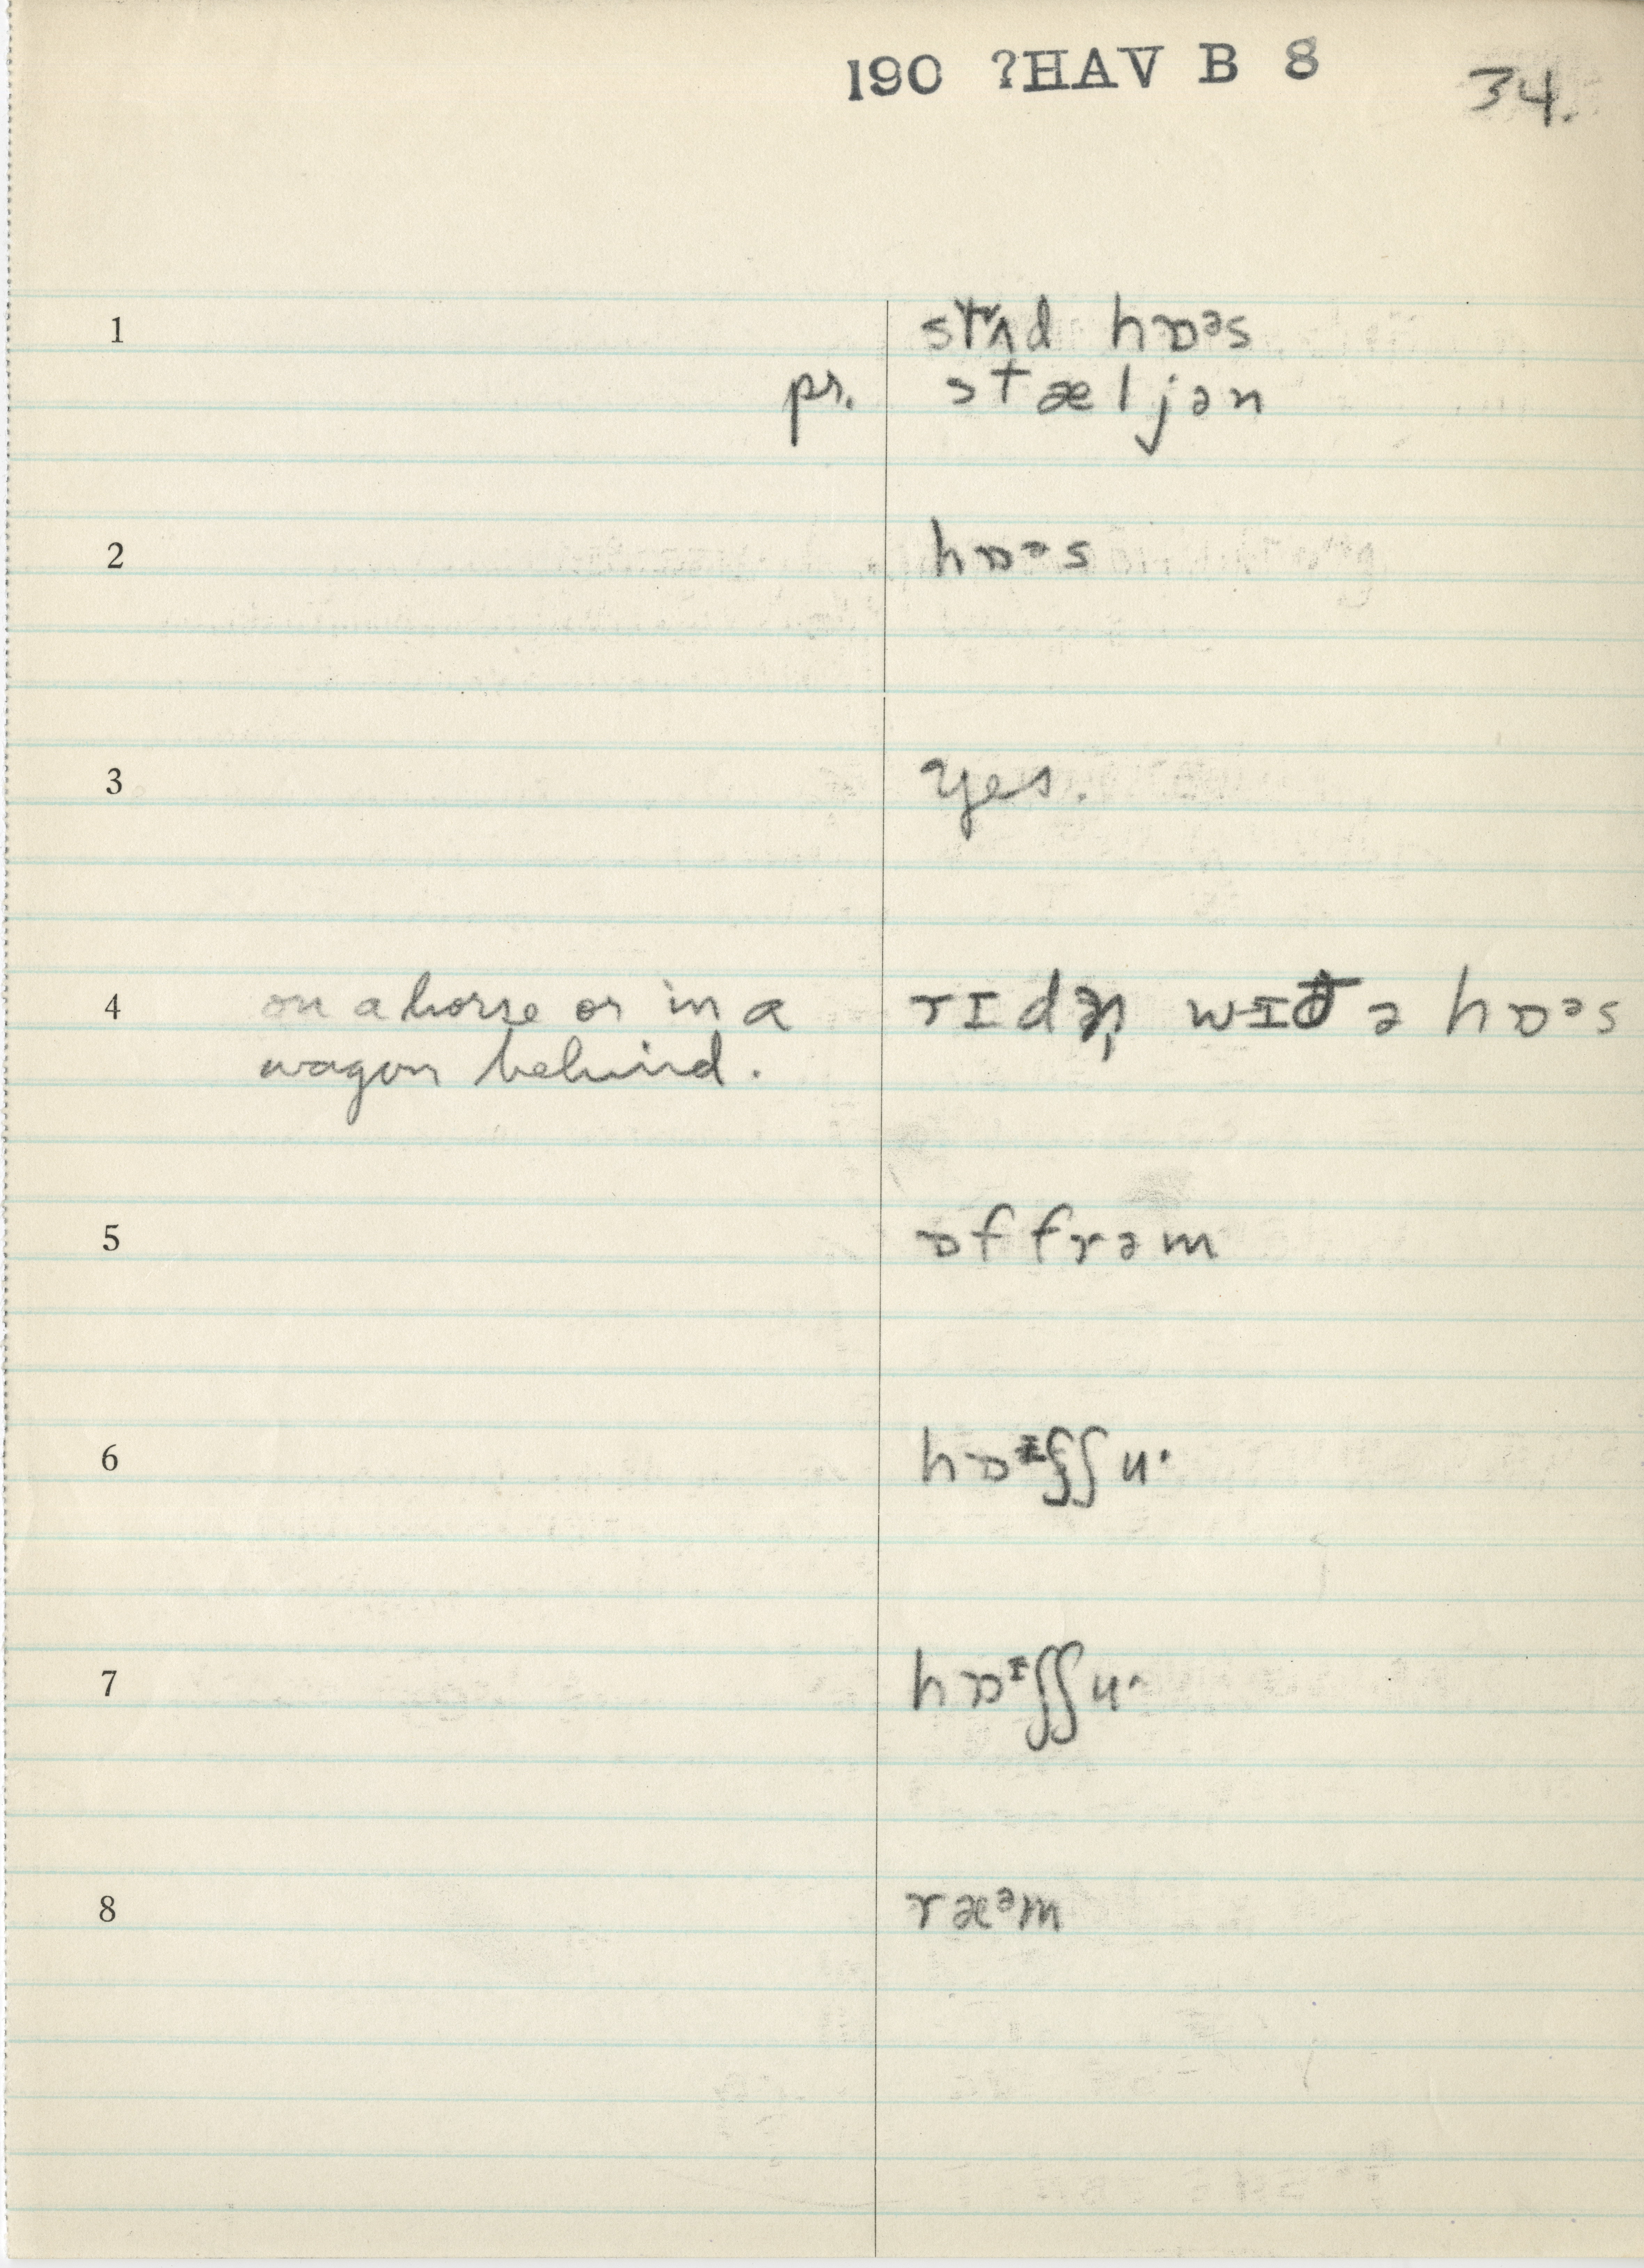 190 ?HAV B 8 34.
1 stʌd hɒᵊs
pr. stæljən
2 hɒᵊs
3 yes.
4 on a horse or in a rɪdn̩ wɪð ə hɒᵊs
wagon behind.
5 ɒf frəm
6 hɒᶦʃʃu·
7 hɒᶦʃʃu·
8 ræᵊm